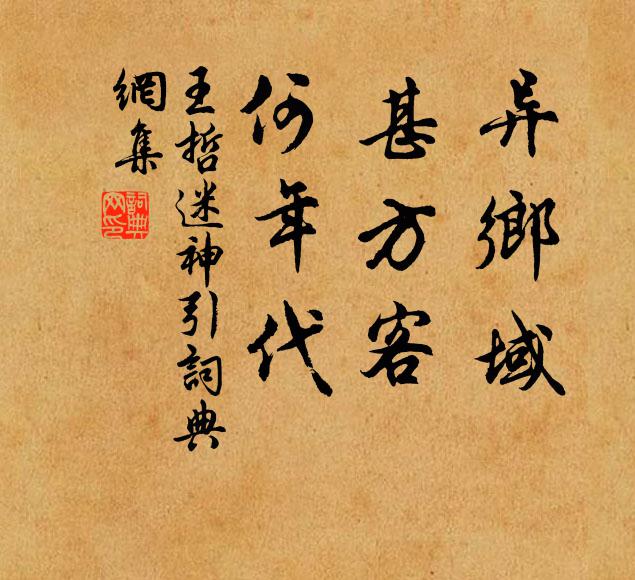 异鄉域
甚方客
何年代
王哲迷神引詞典
網集
詞典
网印